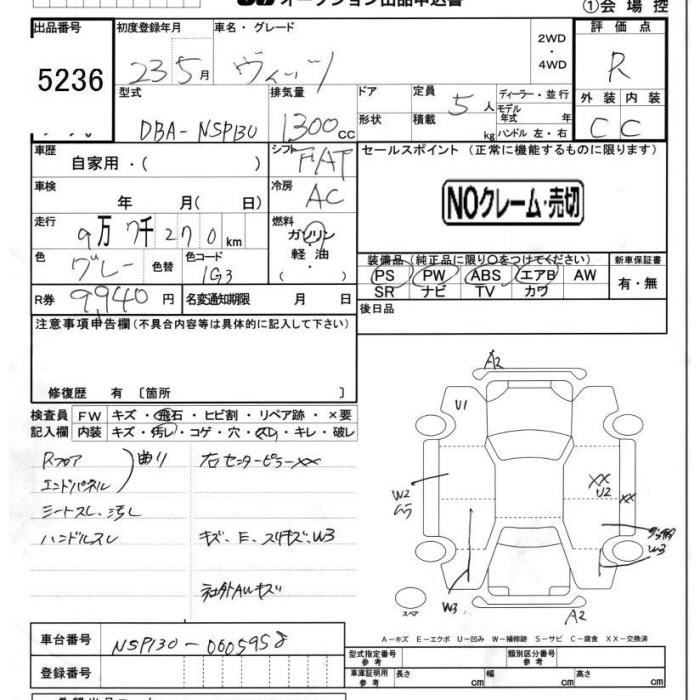 オークション出品申込書
①会場控
出品番号 初度登録年月 車名・グレード 2WD・4WD 評価点
5236 23 5月 ヴィッツ R
型式 排気量 ドア 定員 ディーラー・並行 外装 内装
DBA-NSP130 1300cc 形状 積載 5人 kg モデル年式 年 ハンドル 左・右 C C
車歴 自家用・( ) シフト FAT セールスポイント (正常に機能するものに限ります)
車検 年 月( 日) 冷房 AC
NOクレーム・売切
走行 9万 7千 270km 燃料 ガソリン・軽油・( )
色 グレー 色替 色コード 1G3
装備品 (純正品に限り○をつけてください) 新車保証書
PS PW ABS エアB AW 有・無
SR ナビ TV カワ
R券 9,940円 名変通知期限 月 日 後日品
注意事項申告欄 (不具合内容等は具体的に記入して下さい)
修復歴 有 〔箇所 〕
検査員 FW キズ・飛石・ヒビ割・リペア跡・×要
記入欄 内装 キズ・汚レ・コゲ・穴・スレ・キレ・破レ
Rフロア 曲り 右センターピラーXX
エンドパネル
シートスレ、汚レ
ハンドルスレ キズ、E、スリキズ、W3
社外AWキズ
A2
U1
XX
U2
XX
W2
ムラ
W3
W3
スペア
A2
A-キズ E-エクボ U-凹み W-補修跡 S-サビ C-腐食 XX-交換済
車台番号 NSP130-0605958
型式指定番号 参考 類別区分番号 参考
登録番号 車庫証明用 参考 長さ cm 幅 cm 高さ cm